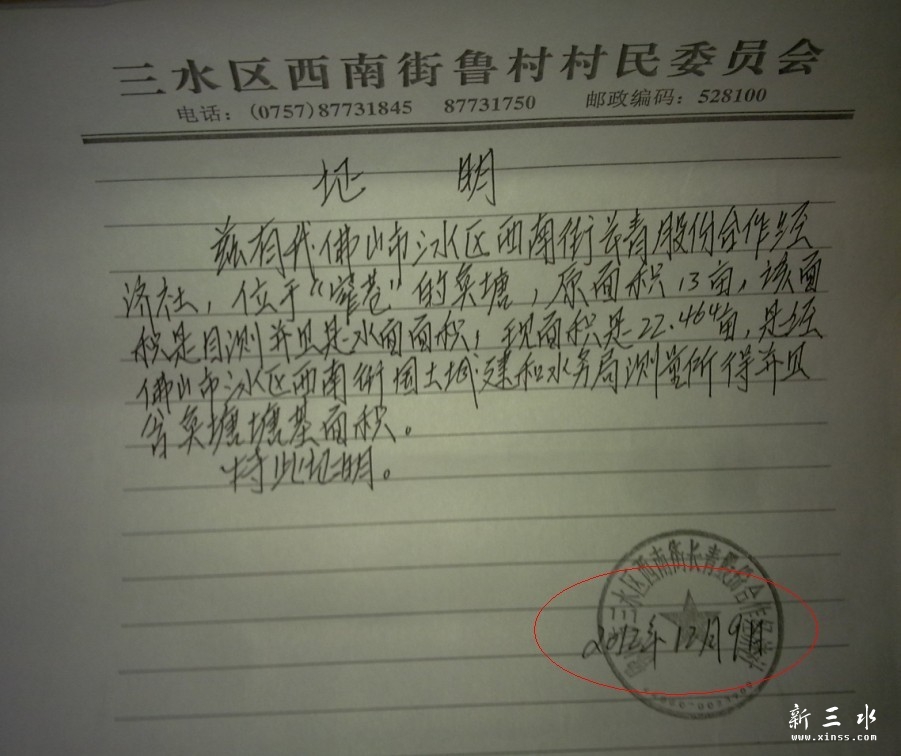 三水区西南街鲁村村民委员会
电话：(0757)87731845 87731750 邮政编码：528100
证 明
兹有我佛山市三水区西南街长青股份合作经
济社，位于“窑巷”的鱼塘，原面积13亩，该面
积是目测并且是水面面积，现面积是22.464亩，是经
佛山市三水区西南街国土城建和水务局测量所得并且
含鱼塘塘基面积。
特此证明。
三水区西南街长青股份合作经济社
2012年12月9日
新三水
www.xinss.com